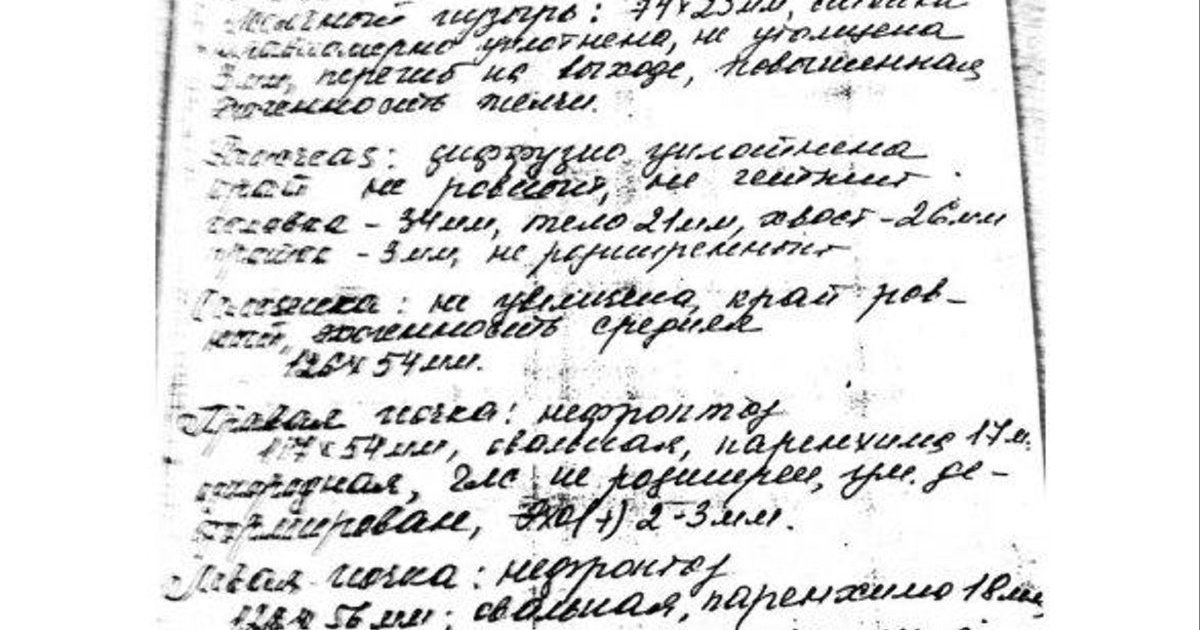 Желчный пузырь: 74х25мм, стенки
равномерно уплотнена, не утолщена
3мм, перегиб на выходе, повышенная
эхогенность желчи.
Pancreas: диффузно уплотнена
край не ровный, не четкий
головка - 34мм, тело 21мм, хвост - 26мм
проток - 3мм, не расширенный
Селезенка: не увеличена, край ров-
ный, эхогенность средняя
126х54мм.
Правая почка: нефроптоз
117х54мм, овальная, паренхима 17м.
однородная, члс не расширен, ум. де-
формирован, Эхо(+) 2-3мм.
Левая почка: нефроптоз
128х56мм; овальная, паренхима 18мм,